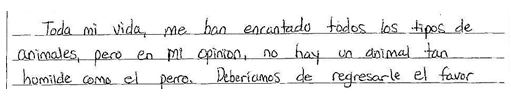 Toda mi vida, me han encantado todos los tipos de
animales, pero en mi opinion, no hay un animal tan
homilde como el perro. Deberiamos de regresarle el favor